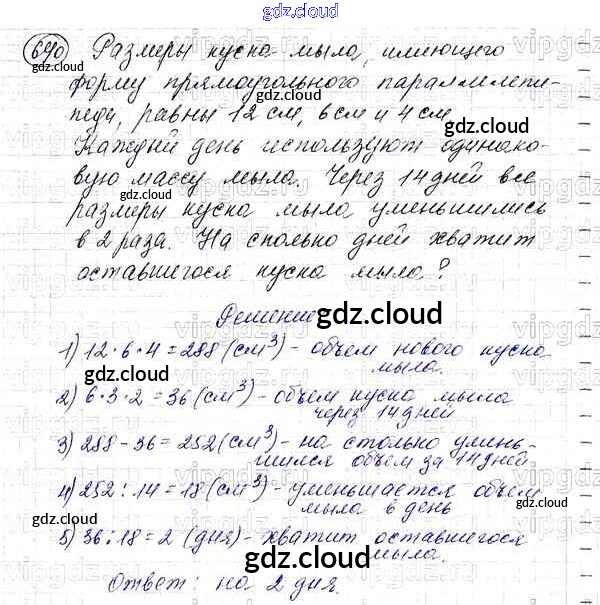 gdz.cloud
640 Размеры куска мыла, имеющего
форму прямоугольного параллелепи-
педа, равны 12 см, 6 см и 4 см.
gdz.cloud
Каждый день используют одинако-
gdz.cloud
вую массу мыла. Через 14 дней все
gdz.cloud
размеры куска мыла уменьшились
в 2 раза. На сколько дней хватит
gdz.cloud
оставшегося куска мыла?
Решение
gdz.cloud
1) 12 · 6 · 4 = 288 (см³) - объем нового куска
мыла.
2) 6 · 3 · 2 = 36 (см³) - объем куска мыла
через 14 дней
3) 288 - 36 = 252 (см³) - на столько умень-
шился объем за 14 дней
4) 252 : 14 = 18 (см³) - уменьшается объем
мыла в день
5) 36 : 18 = 2 (дня) - хватит оставшегося
мыла.
Ответ: на 2 дня.
gdz.cloud